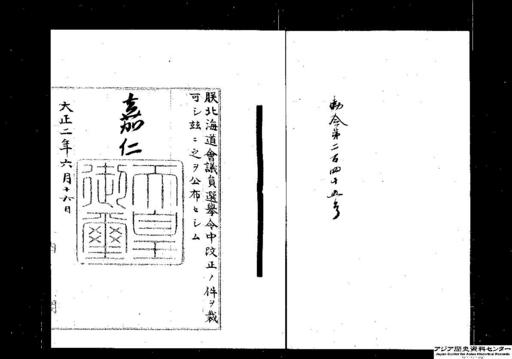 勅令第二百四十九号
朕北海道會議員選擧令中改正ノ件ヲ裁
可シ玆ニ之ヲ公布セシム
嘉仁
天皇
御璽
大正二年六月十六日
内閣
アジア歴史資料センター
Japan Center for Asian Historical Records